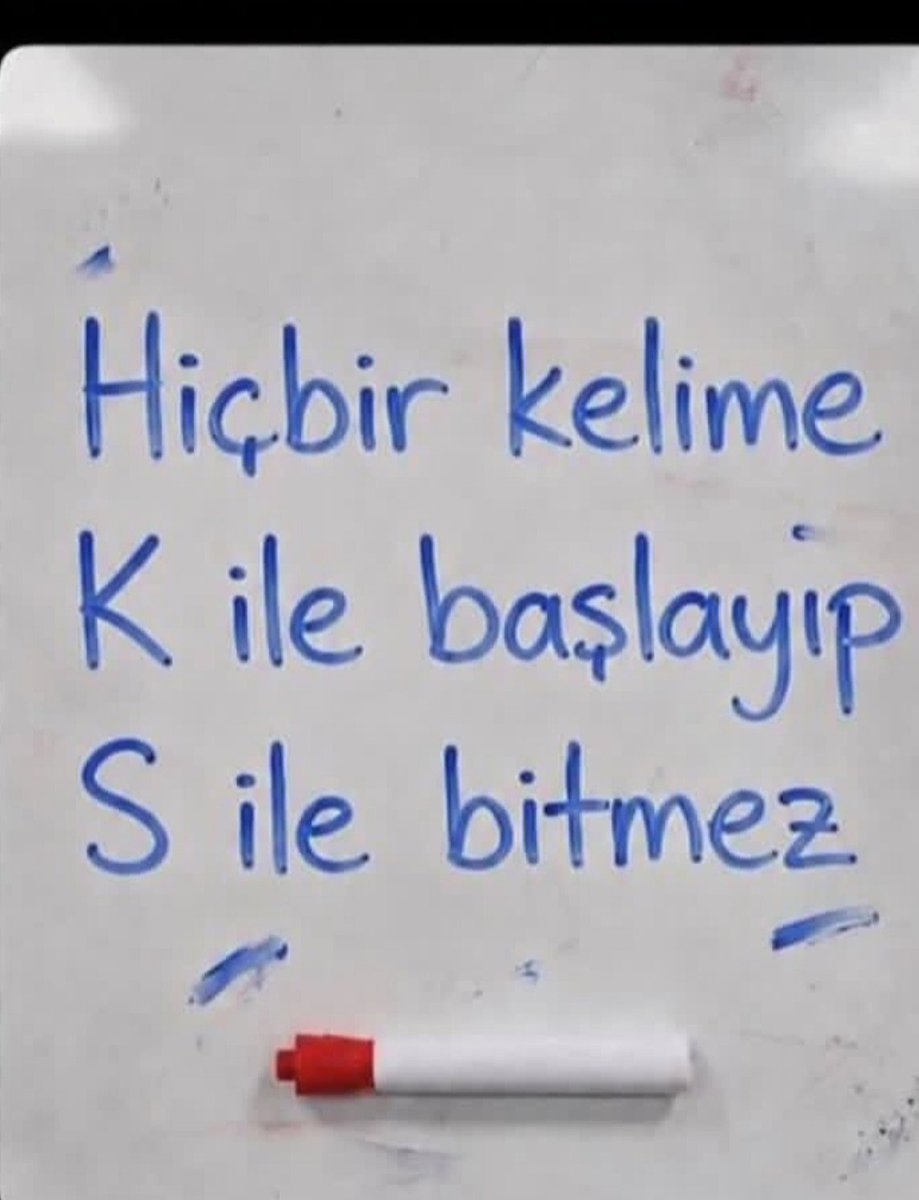 Hiçbir kelime
K ile başlayıp
S ile bitmez